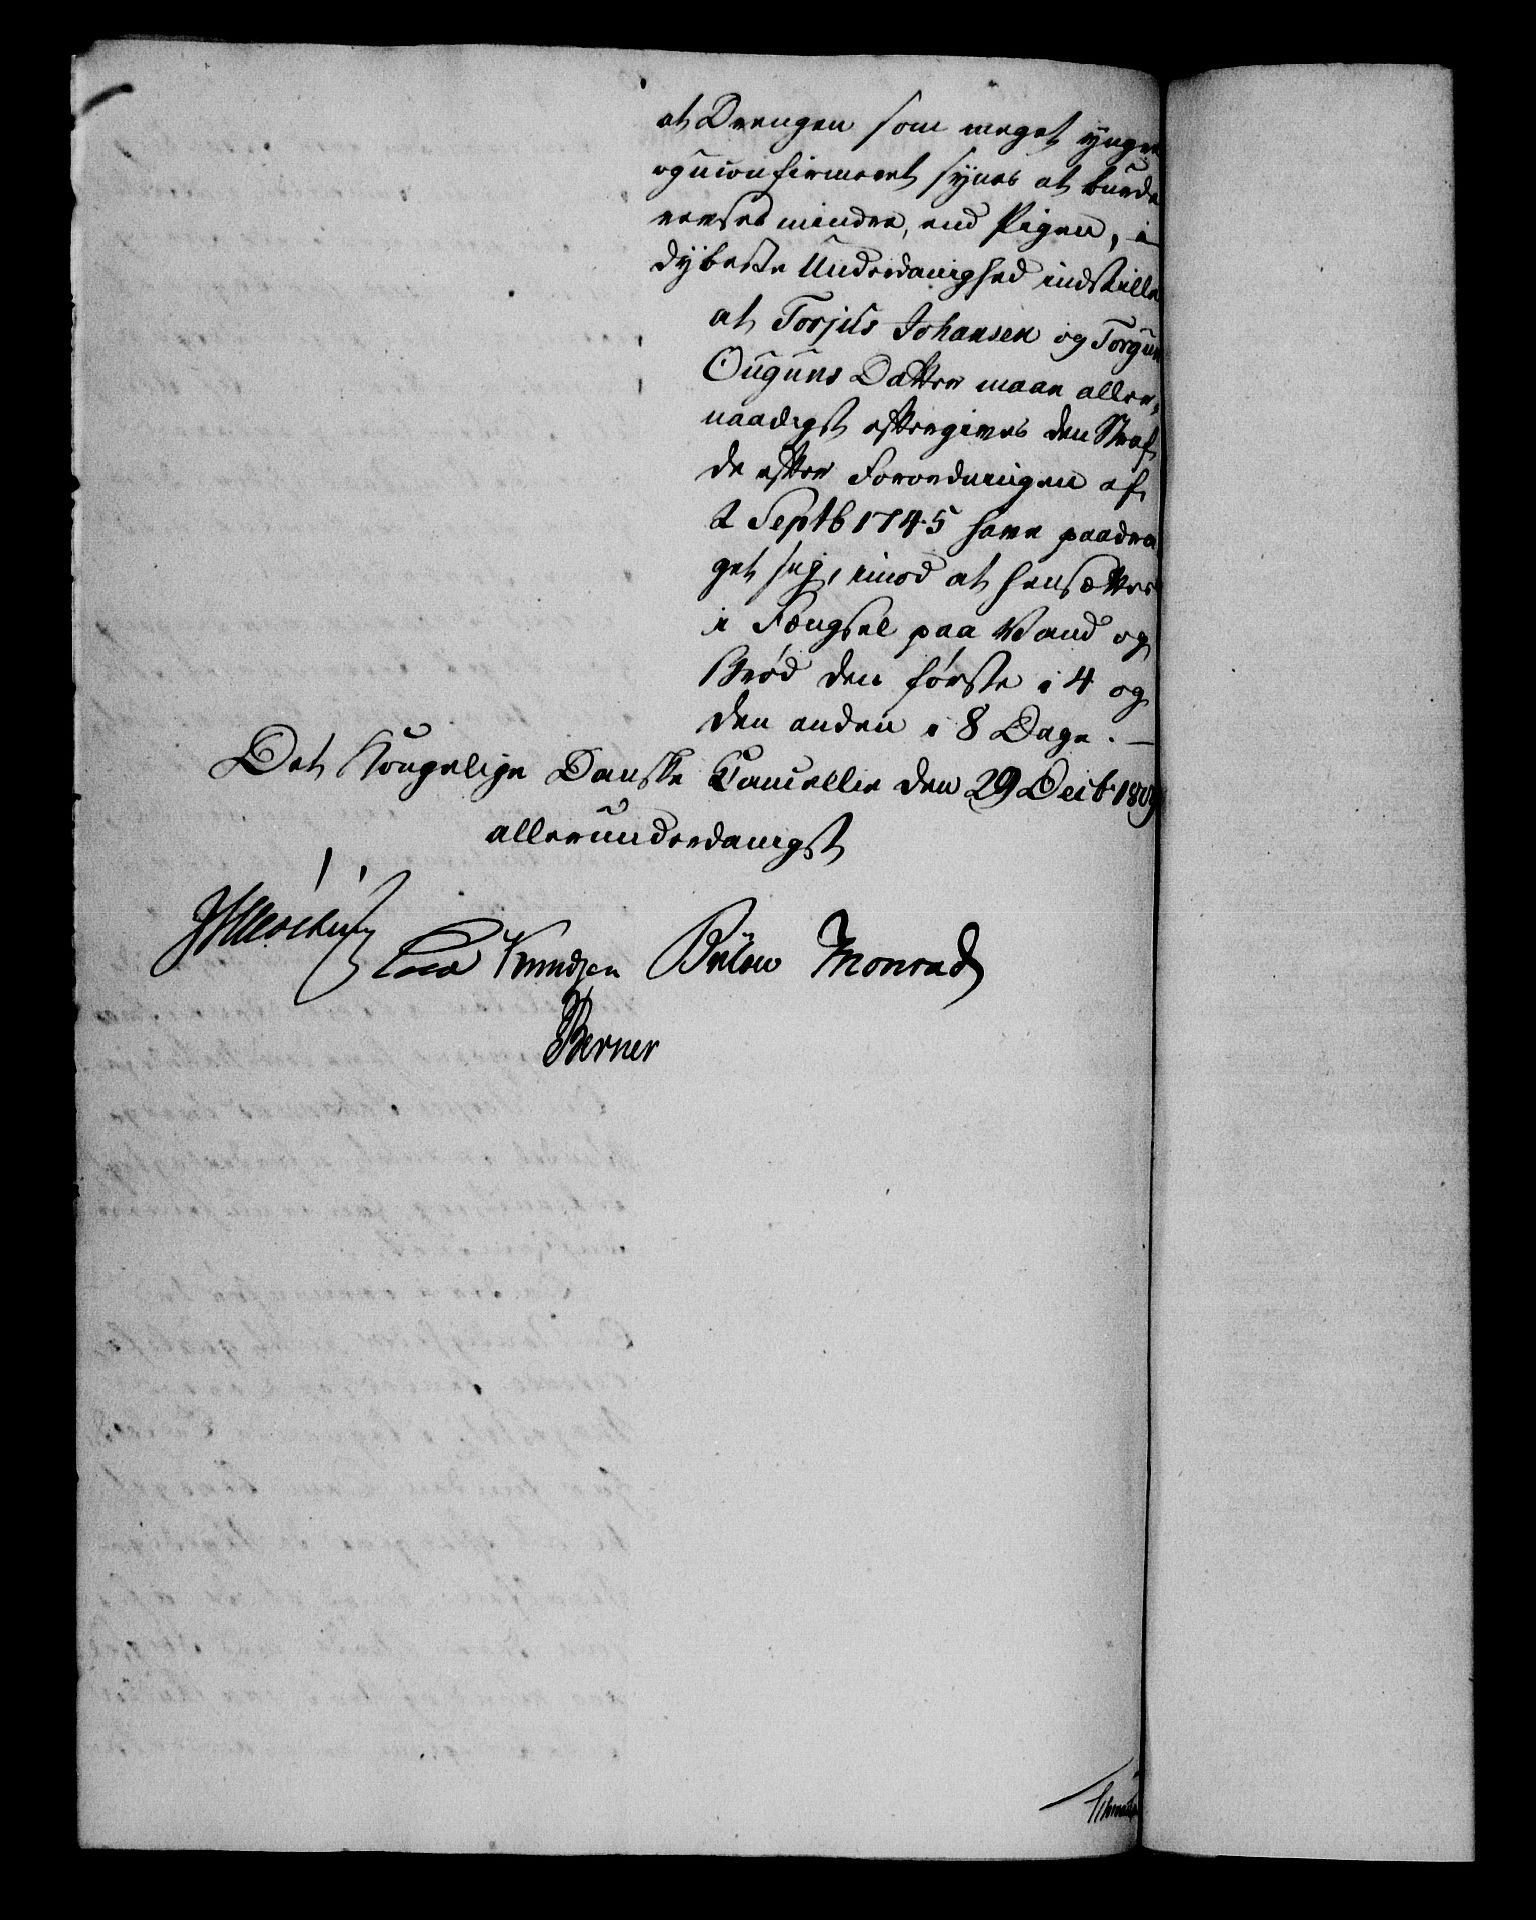 at Drengen som meget yngre
og uconfirmeret synes at burde
revses mindre, end Pigen, i
dybeste Underdanighed indstille
at Torjus Johansen og Torgun
Ouguns Datter maae aller,
naadigst eftergives den Straf
de efter Forordningen af
2 Septb 1745 have paadra
get sig, imod at hensættes
i Fængsel paa Vand og
Brød den første i 4 og
den anden i 8 Dage. —
Det Kongelige Danske Cancellie den 29 Decb. 180
allerunderdanigst
Knudsen Bülow Monrad
Berner